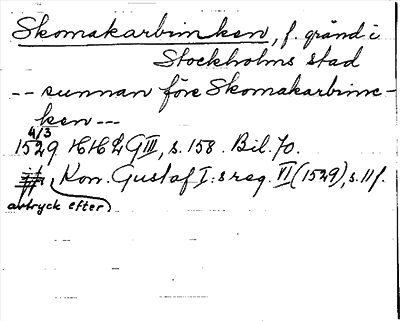 Skomakarbrinken, f. gränd i
Stockholms stad
-- sunnan före Skomakarbrinc-
ken ---
4/3
1529 HH2 GIII, s. 158. Bil. 70.
jfr, Kon. Gustaf I:s reg. VI (1529), s. 11 f.
avtryck efter